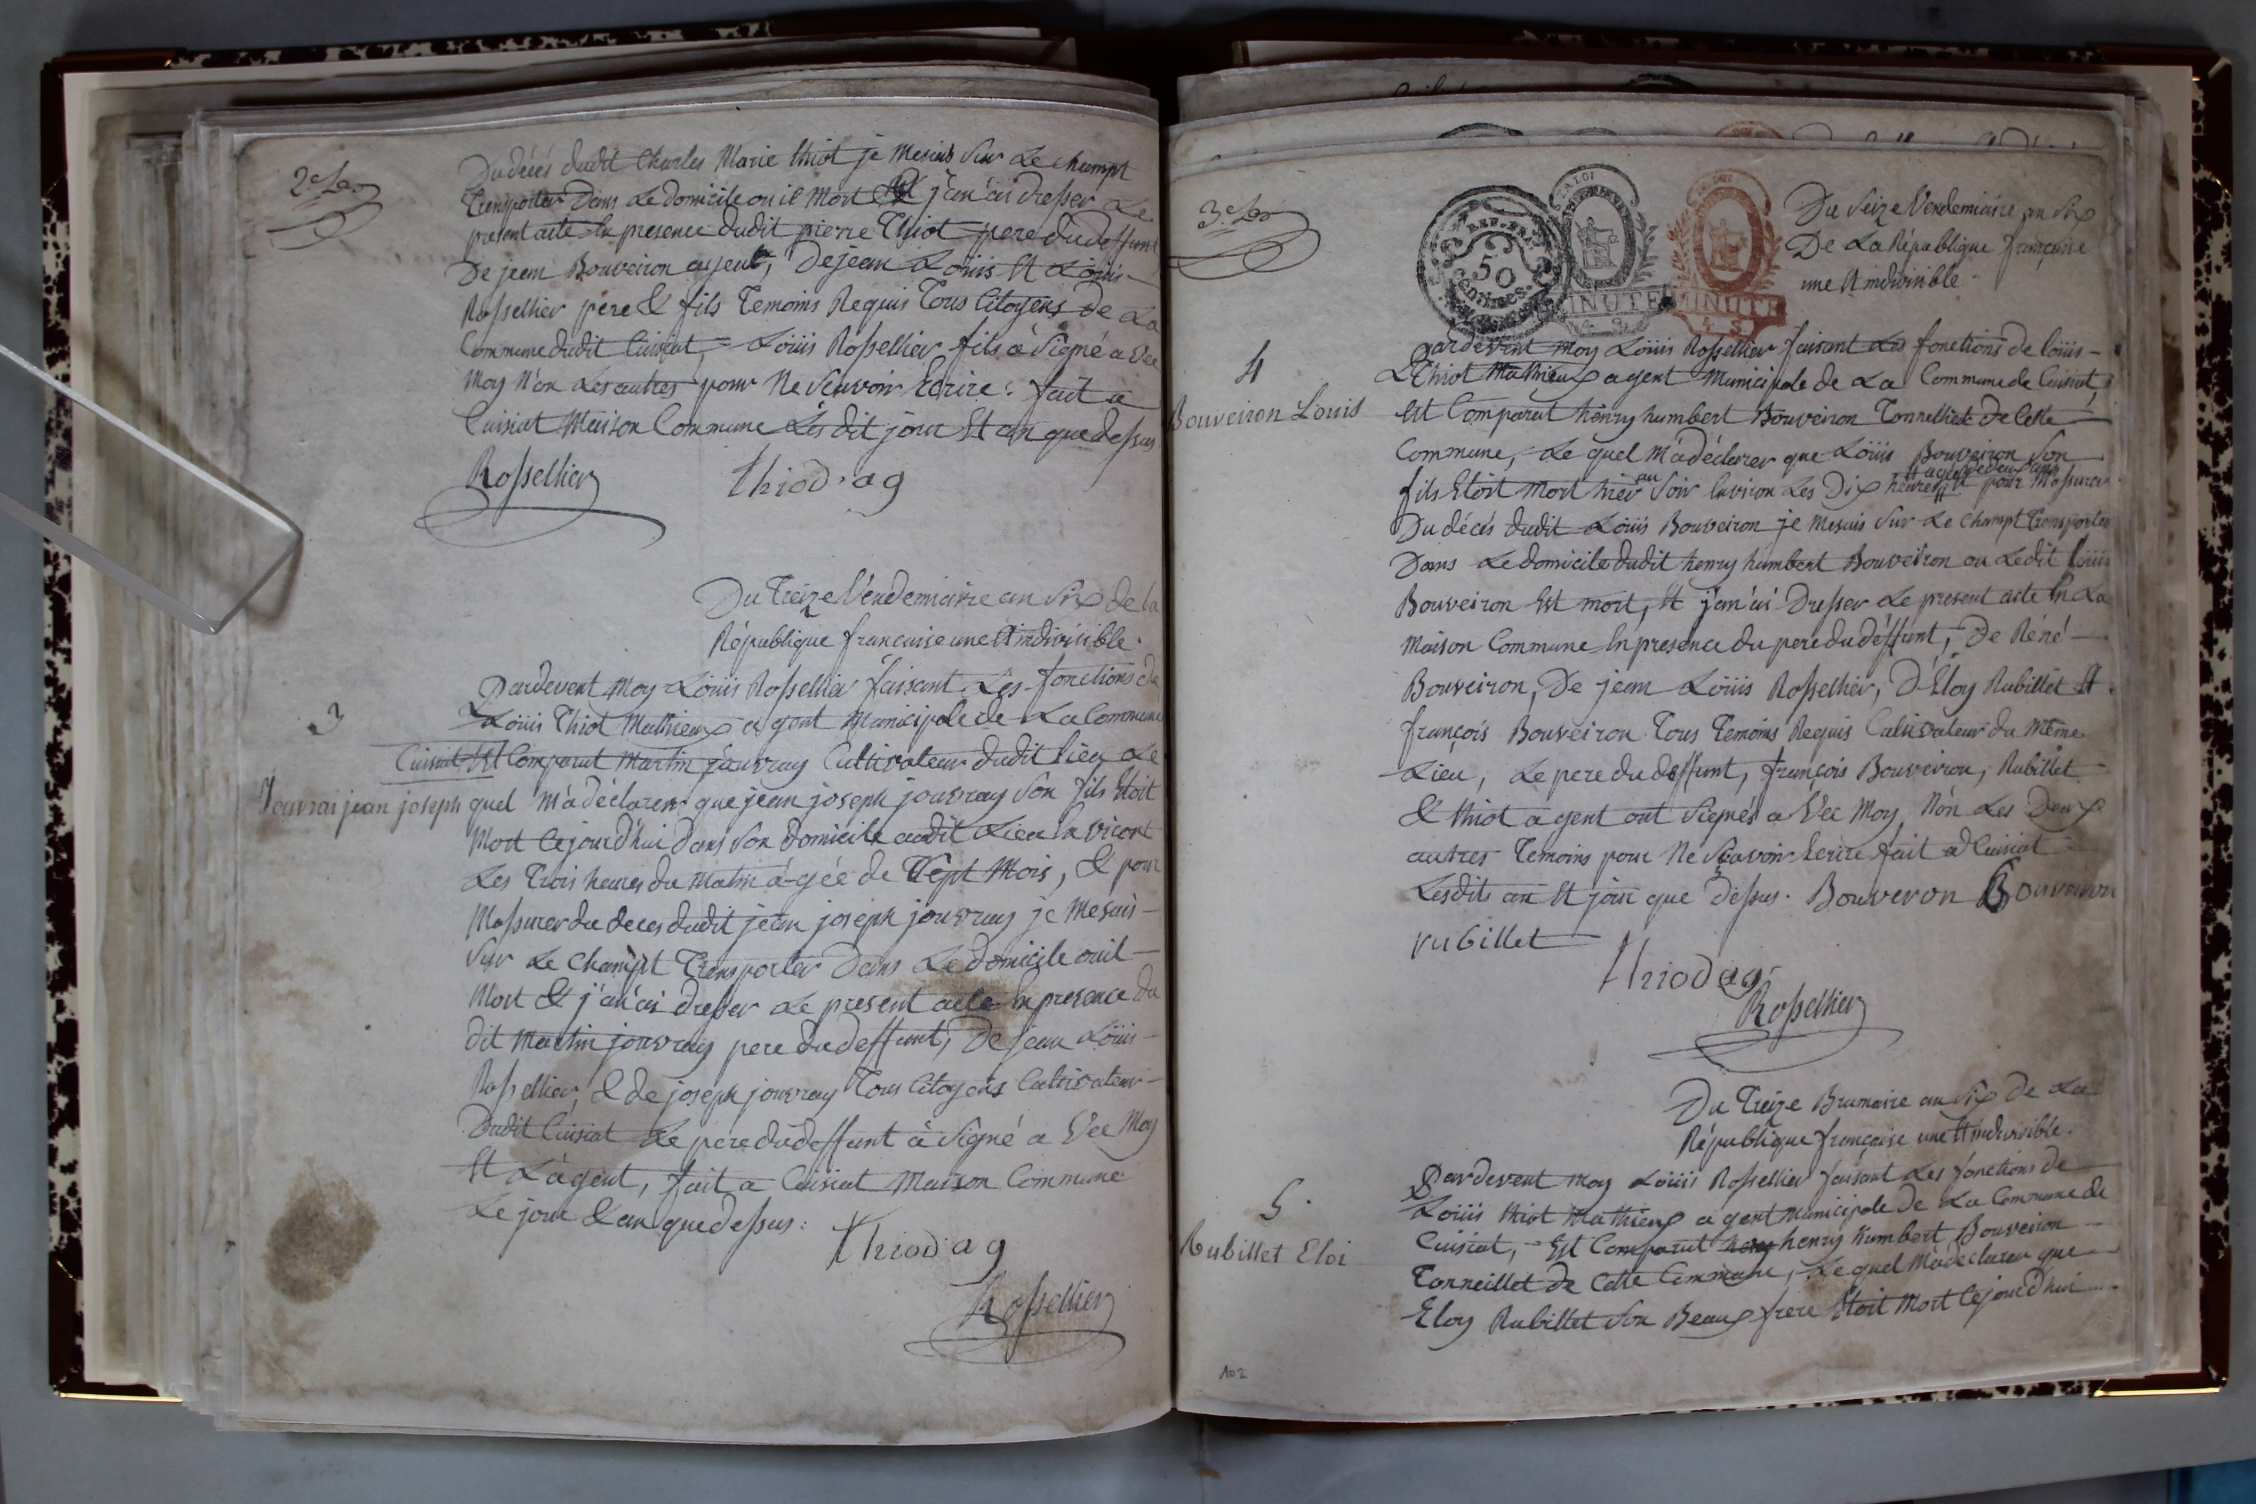 2e
Du décés dudit Charles Marie thiot je mesuis sur Le champt
Transporter Dans Le domicile ou il Mort & j'an'ai dresser Le
present acte En presence dudit pierre Thiot pere du deffunt
De jean Bouveiron agent, De jean Loüis Et Loüis
Rossellier pere & fils Temoins Requis Tous Citoyens de La
Commune dudit Cuisiat, Loüis Rossellier fils à Signé a Vec
Moy N'on Les autres pour Ne Scavoir Ecrire : fait a
Cuisiat Maison Commune Les dit jour Et an que dessus
Rossellier thiod. ag
Du Treize Vendemiaire an Six de la
République francaise une Et indivisible.
3
Pardevent Moy Loüis Rossellier faisant Les fonctions de
Loüis Thiot Mathieux agent Municipale de La Commune
Cuisiat, Est Comparut Martin jouvray Cultivateur dudit lieu Le
Jouvrai jean joseph
quel M'a déclarer que jean joseph jouvray Son fils Etoit
Mort Cejourd'hui Dans Son Domicile audit Lieu En viront
Les Trois heures du Matin a gée de Sept Mois, & pour
M'assurer du deces dudit jean joseph jouvray je Mesuis
Sur Le Champt Transporter Dans Le domicile ou il
Mort & j'an'ai dresser Le present acte En presence du
dit Martin jouvray pere du deffunt, De jean Loüis
Rossellier, & de joseph jouvray Tous Citoyens Cultivateur
Dudit Cuisiat Le pere du deffunt à Signé a Vec Moy
Et L'agent, fait a Cuisiat Maison Commune
Le jour & an que dessus :
thiod ag
Rossellier
3e
LA LOI
REP. FRA
50
Centimes
MINUTE
MINUTE
Du Seize Vendemiaire an Six
De La République françoise
une Et indivisible
4
Bouveiron Louis
Pardevent Moy Loüis Rossellier faisant Les fonctions de loüis
Thiot Mathieux agent Municipale de La Commune de Cuisiat,
Est Comparut henry humbert Bouveiron Tonnellier de Cette
Commune, Le quel M'a déclarer que Loüis Bouveiron Son
fils Etoit Mort hier au Soir Environ Les Dix heures Et pour M'assurer
Du décés dudit Loüis Bouveiron je Mesuis Sur Le Champt Transporter
Dans Le domicile dudit henry humbert Bouveiron ou Ledit Loüis
Bouveiron Est mort, Et j'an'ai Dresser Le present acte En La
Maison Commune En presence du pere du deffunt, De Réné
Bouveiron, De jean Loüis Rossellier, D'Eloy Rubillet Et
françois Bouveiron Tous Temoins Requis Cultivateur du Même
Lieu, Le pere du deffunt, françois Bouveiron, Rubillet
& thiot agent ont Signés a Vec Moy, N'on Les Deux
autres Temoins pour Ne Scavoir Ecrire fait a Cuisiat
Lesdits an Et jour que Dessus. Bouveron Bouveiron
rubillet
thiod ag
Rossellier
Du Treize Brumaire an Six de La
République françoise une Et indivisible.
5.
Rubillet Eloi
Pardevent moy Loüis Rossellier faisant Les fonctions de
Loüis thiot Mathieux agent Municipale de La Commune de
Cuisiat, Est Comparut henry humbert Bouveiron
Tonneillet de Cette Commune, Le quel M'a déclarer que
Eloy Rubillet Son Beaux frere Etoit Mort Cejourd'hui
102